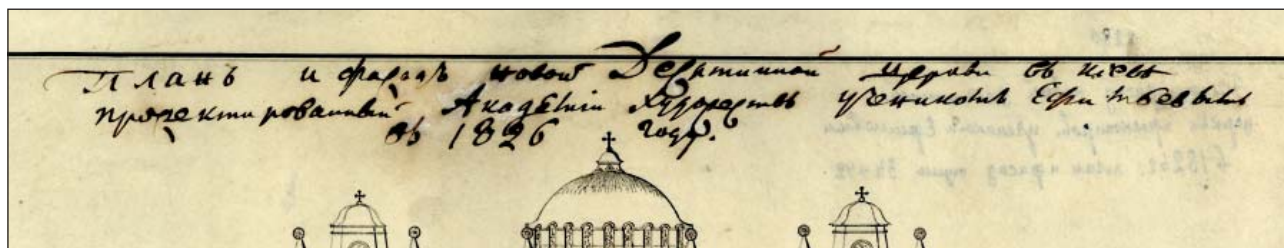 Планъ и фасадъ новой Десятинной Церкви въ Кіевѣ
проэктированный Академіи Художествъ ученикомъ Ефимъевымъ
въ 1826 году.